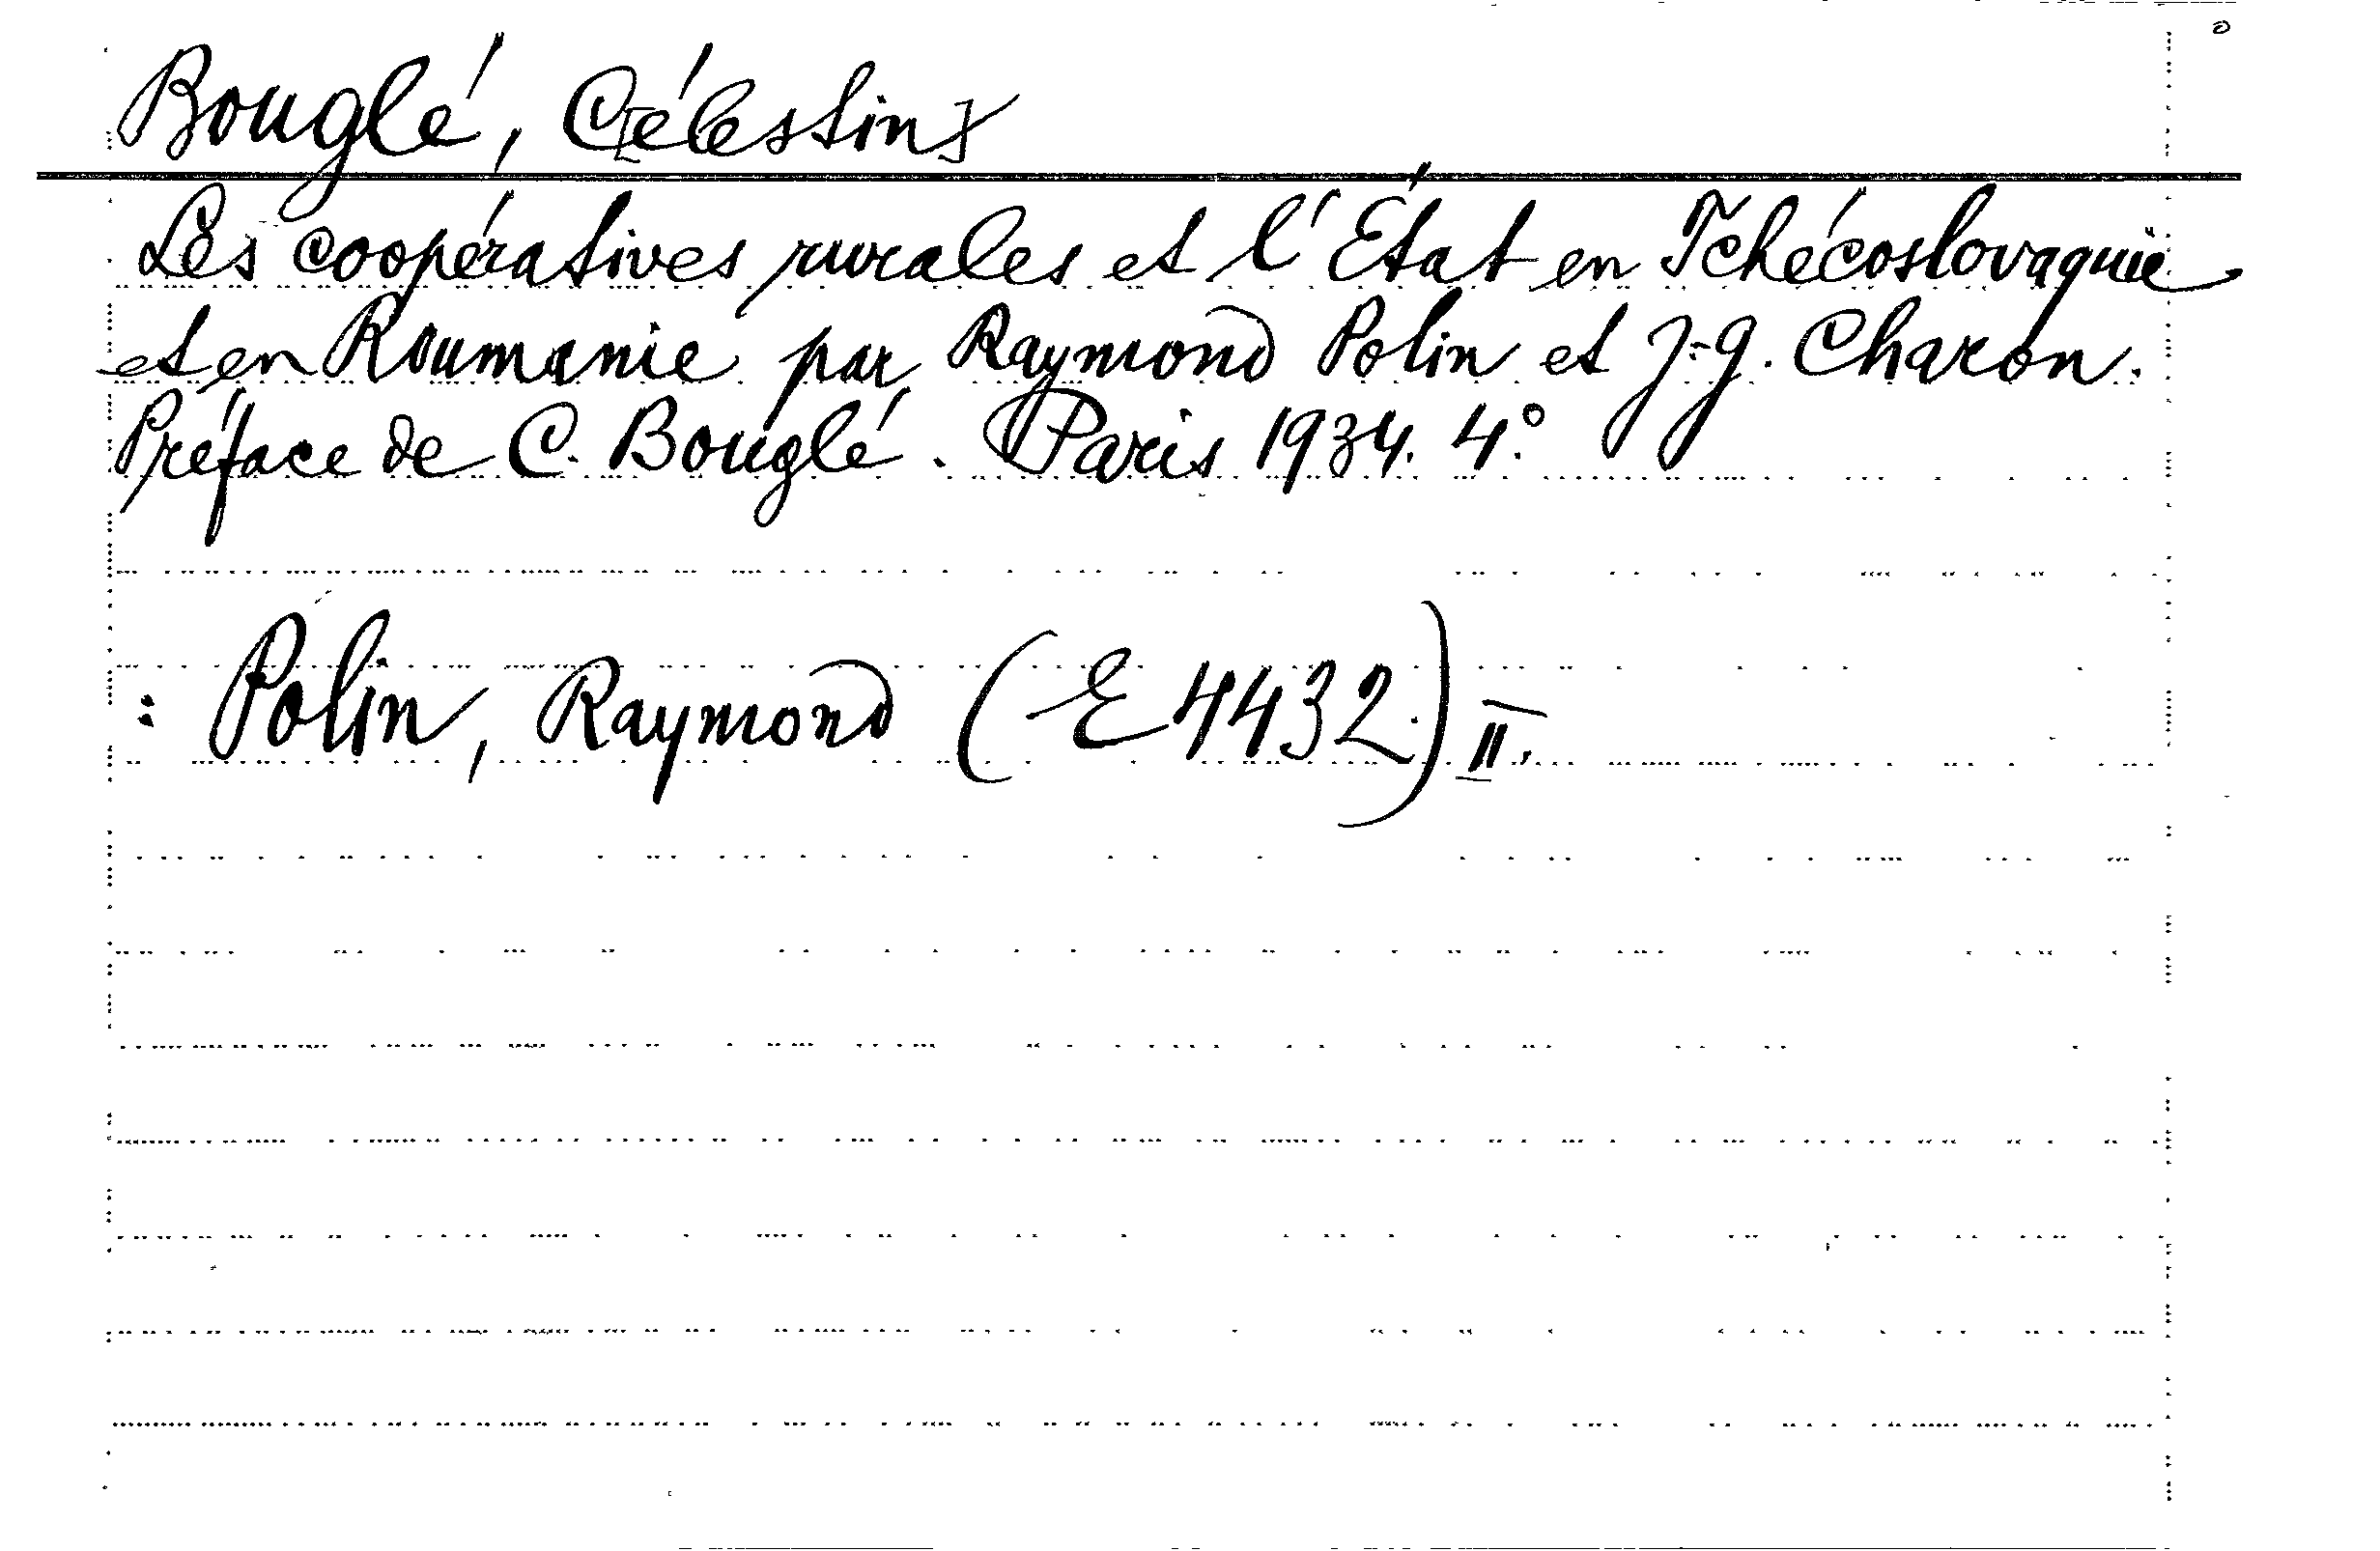 Bouglé, C[élestin]
Les coopératives rurales et l'État en Tchécoslovaquie
et en Roumanie par Raymond Polin et J.-G. Charon.
Préface de C. Bouglé. Paris 1934. 4°.
: Polin, Raymond (E 4432) II.